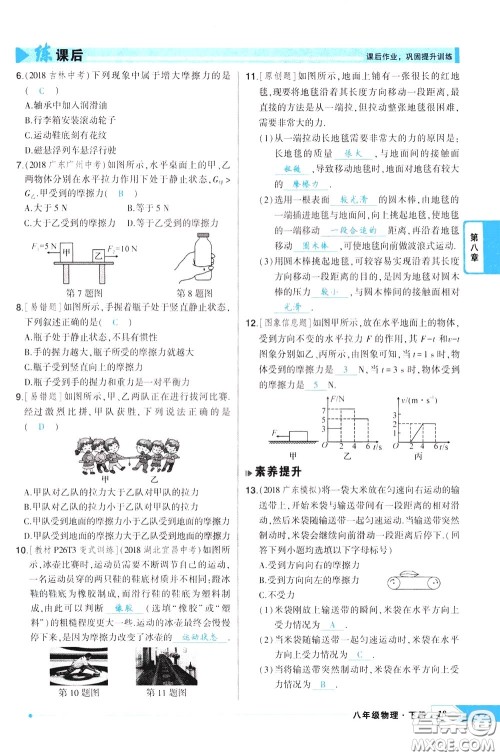 练 课后
课后作业，巩固提升训练
6.(2018吉林中考)下列现象中属于增大摩擦力的是
( C )
A.轴承中加入润滑油
B.行李箱安装滚动的轮子
C.运动鞋鞋底刻有花纹
D.磁悬浮列车悬浮行驶
7.(2018广东广州中考)如图所示,水平桌面上的甲、乙
两物体分别在水平拉力作用下处于静止状态,G甲>
G乙.甲受到的摩擦力 ( B )
A.大于5 N B.等于5 N
C.大于乙受到的摩擦力 D.小于乙受到的摩擦力
F₁=5 N 甲 乙 F₂=10 N
第7题图 第8题图
8.[易错题]如图所示,手握着瓶子处于静止状态,
下列叙述正确的是 ( C )
A.瓶子处于静止状态,不具有惯性
B.手的握力越大,瓶子所受的摩擦力就越大
C.瓶子受到竖直向上的摩擦力
D.瓶子受到手的握力和重力是一对平衡力
9.[易错题]如图所示,甲、乙两队正在进行拔河比赛.
经过激烈比拼,甲队获胜.下列说法正确的是
( D )
A.甲队对乙队的拉力大于乙队对甲队的拉力
B.甲队对乙队的拉力小于乙队对甲队的拉力
C.甲队受到地面的摩擦力小于乙队受到地面的摩擦力
D.甲队受到地面的摩擦力大于乙队受到地面的摩擦力
10.[教材P26T3变式训练](2018湖北宜昌中考)如
图所示,冰壶比赛中,运动员为了便于在冰面上滑
行,所穿的两只鞋的鞋底材质是不同的,一只鞋鞋
底为橡胶制成,而另一只鞋的鞋底为塑料制成,由
此可以判断 橡胶 (选填“橡胶”或“塑
料”)的粗糙程度更大一些.比赛中的冰壶最终会慢慢
停下来,是因为摩擦力改变了冰壶的 运动状态.
第10题图 第11题图
11.[原创题]如图所示,地面上铺有一张很长的红地
毯,我们将毯沿着其长度方向移动一段距离,最直
接的办法是从一端拉,但从一端拉动整张地毯,
需要非常大的力.
(1)从一端拉动长地毯需要非常大的力的原因是;
长地毯的质量 很大 ,与地面间的接触面
粗糙 ,导致移动地毯时,地毯与地面间的
摩擦力 大.
(2)选用一根表面 较光滑 的圆木棒,从地毯的
一端推进地毯与地面间,托起部分地毯,水平
向前移动 一段合适的 距离,再向前推动
圆木棒 ,使地毯向前做波浪式运动.
(3)用圆木棒托起地毯,可以很容易地将地毯沿着
其长度方向移动一段距离,地毯与地面间移动
时的摩擦力 小 ,地毯与圆木棒间接触面相对
光滑 .
12.[图象信息题]如图甲所示,放在水平地面上的物体,
受到方向不变的水平拉力F的作用,其F—t和v—t
图象分别如图乙、丙所示,由图象可知,当t=1 s时,物
体受到的摩擦力是 3 N.当t=3 s时,物体受到的
摩擦力是 5 N.
甲 乙 丙
素养提升
13.(2018广东模拟)将一袋大米放在匀速向右运动的输
送带上,当米袋与输送带间有一段相对滑动的距离,
然后米袋与输送带一起匀速运动,当输送带突然停止,
米袋会继续向前滑动一段距离后停下来.(回
答下列小题均选填以下字母标号)
A.受到方向向右的摩擦力
B.受到方向向左的摩擦力
C.不受力
(1)米袋刚放上输送带时,米袋在水平方向上
受力情况为 A .
(2)米袋与输送带一起匀速运动时,米袋在水平方
向上受力情况为 C .
(3)当输送带突然停止时,米袋在水平方向上受力
情况为 B .
第八章
八年级物理·下册